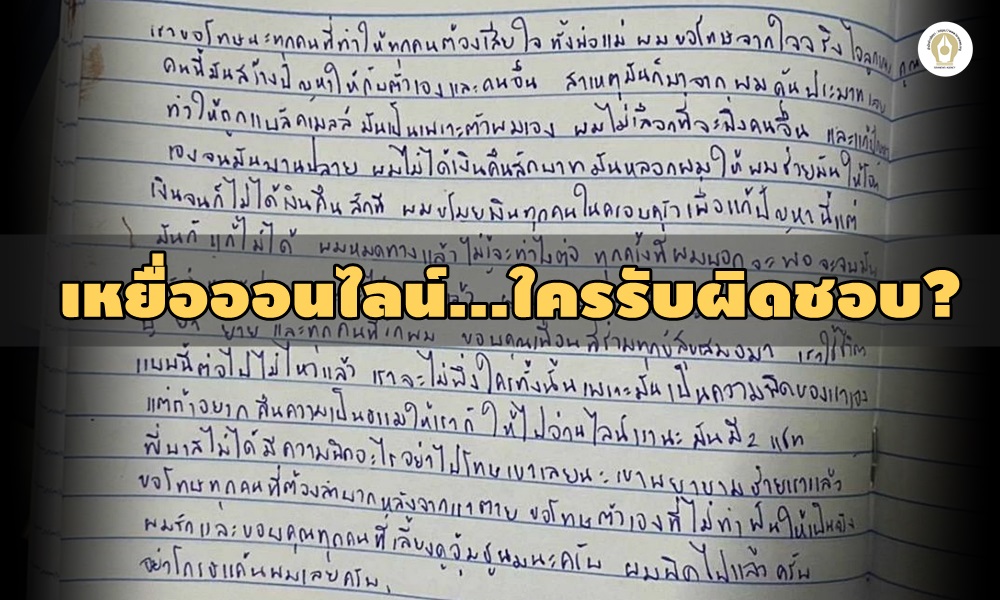 เราขอโทษนะทุกคนที่ทำให้ทุกคนต้องเสียใจ ทั้งพ่อแม่ ผมขอโทษจากใจจริงไอลูก
คนนี้มันสร้างปัญหาให้กับตัวเองและคนอื่น สาเหตุมันก็มาจากผมดันประมาทเลย
ทำให้ถูกแบล็คเมลล์ มันเป็นเพราะตัวผมเอง ผมไม่เลือกที่จะพึ่งคนอื่น และแก้ปัญหา
เองจนมันบานปลาย ผมไม่ได้เงินคืนสักบาท มันหลอกผมให้ผมช่วยมันให้โอน
เงินจนก็ไม่ได้เงินคืนสักที ผมขโมยเงินทุกคนในครอบครัวเพื่อแก้ปัญหานี้แต่
มันก็แก้ไม่ได้ ผมหมดทางแล้ว ไม่รู้จะทำไงต่อ ทุกครั้งที่ผมบอกจะพอจะจบมัน
เหยื่อออนไลน์...ใครรับผิดชอบ?
ยาย และทุกคนที่รักผม ขอบคุณเพื่อนที่ร่วมทุกข์สุขเสมอมา เราใช้ชีวิต
แบบนี้ต่อไปไม่ไหวแล้ว เราจะไม่พึ่งใครทั้งนั้นเพราะมันเป็นความผิดของเราเอง
แต่ถ้าอยากคืนความเป็นธรรมให้เราก็ ให้ไปอ่านไลน์เรานะ มันมี 2 แชท
พี่บาสไม่ได้มีความผิดอะไรอย่าไปโทษเขาเลยนะ เขาพยายามช่วยเราแล้ว
ขอโทษทุกคนที่ต้องลำบากหลังจากเราตาย ขอโทษตัวเองที่ไม่ทำฝันให้เป็นจริง
ผมรักและขอบคุณทุกคนที่เลี้ยงดูอุ้มชูผมนะครับ ผมผิดไปแล้วครับ
อย่าโกรธแค้นผมเลยครับ